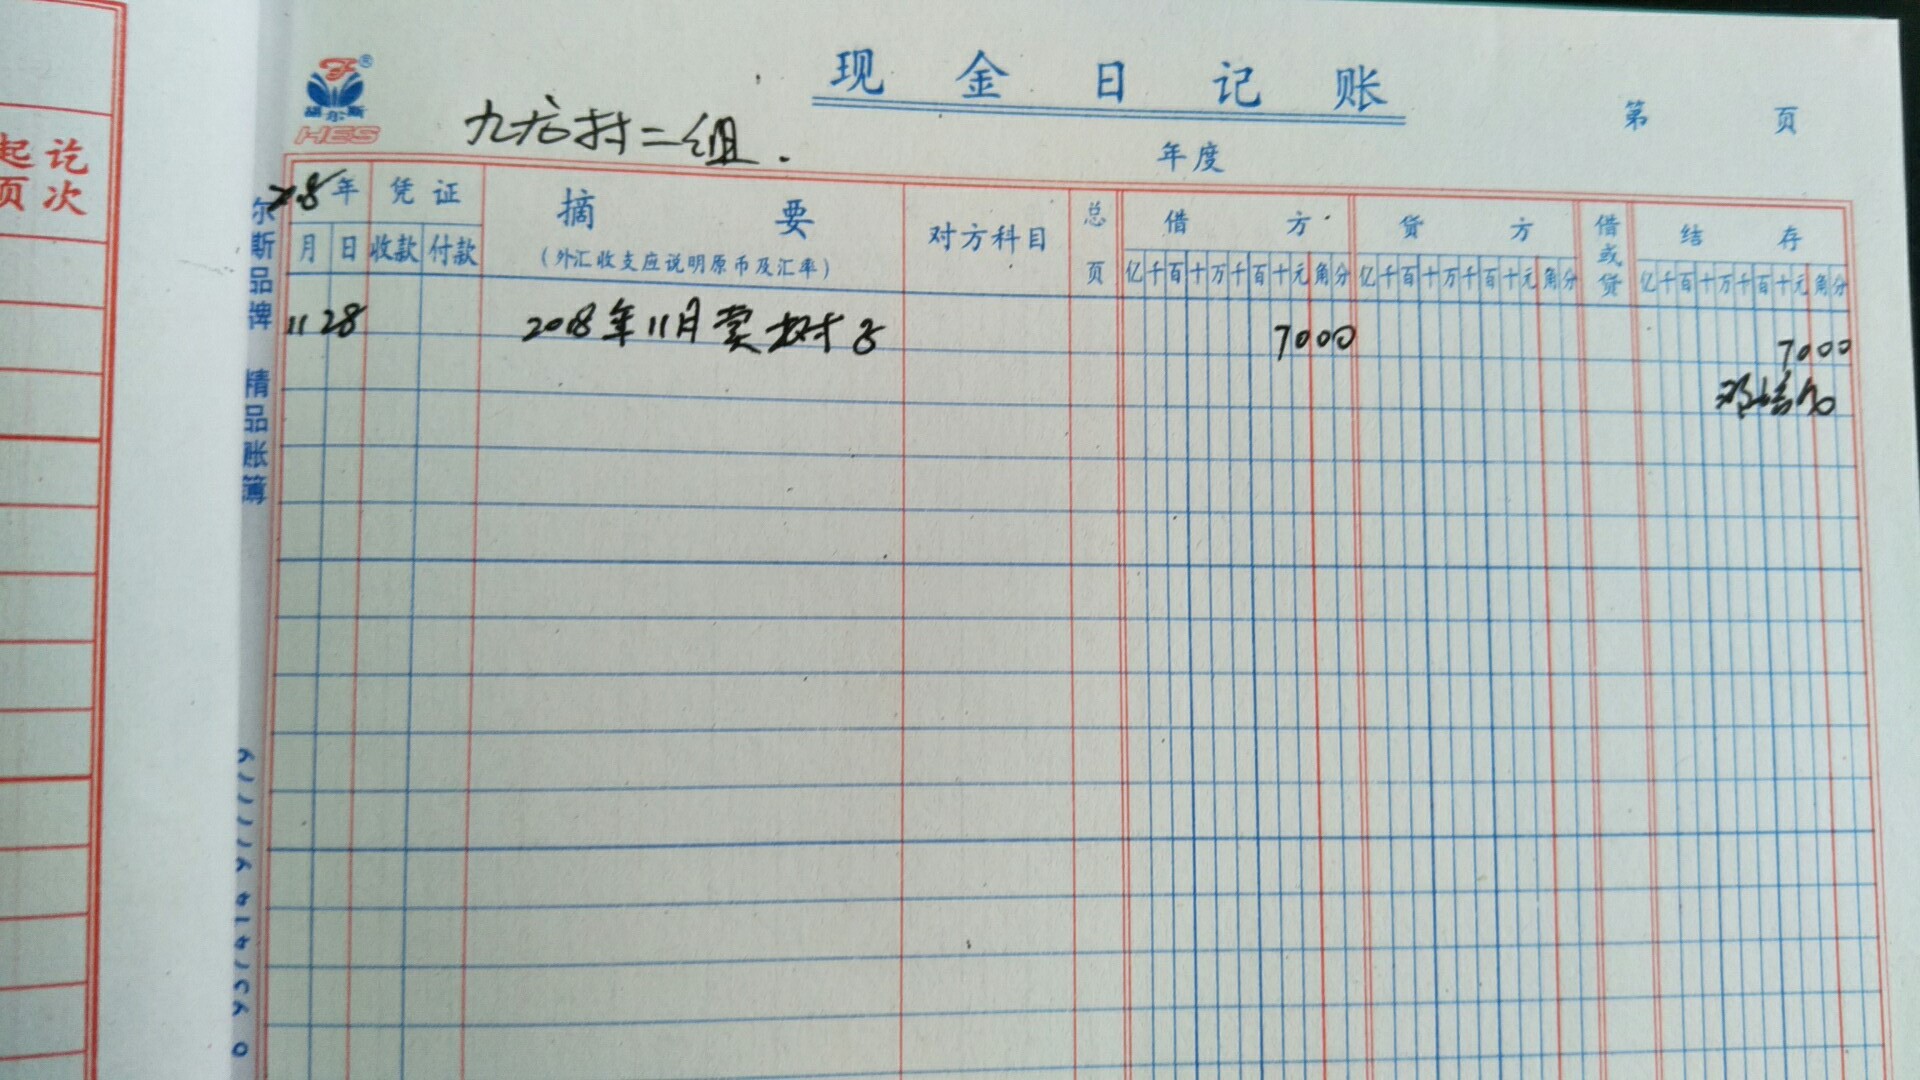 起讫
页次
福尔斯
HES
现金日记账
九龙村二组.
第 页
年度
年 凭证 摘要 对方科目 总页 借方 贷方 借或贷 结存
月 日 收款 付款 (外汇收支应说明原币及汇率) 亿千百十万千百十元角分 亿千百十万千百十元角分 亿千百十万千百十元角分
11 28 2018年11月卖树 7000 7000
尔斯品牌 精品账簿